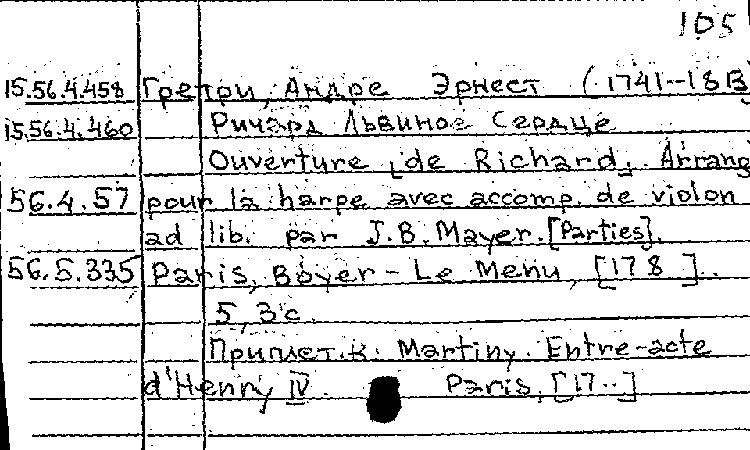 105
15.56.4.458 Гретри, Андре Эрнест (1741-1813
15.56.4.460 Ричард Львиное Сердце
Ouverture [de Richard]. Arrang
56.4.57 pour la harpe avec accomp. de violon
ad lib. par J.B. Mayer. [Parties].
56.5.335 Paris, Boyer - Le Menu, [178 ]..
5, 3 c.
Приплет. к. Martiny. Entre-acte
d'Henry IV. Paris, [17..]